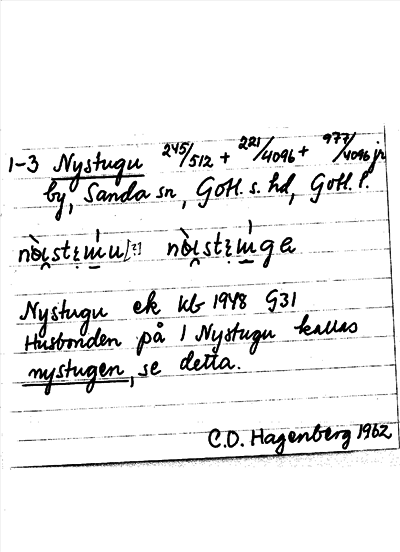 1-3 Nystugu 245/512 + 221/4096 + 977/4096 jr
by, Sanda sn, Gotl. s. hd, Gotl. l.
Nystugu ek kb 1948 G31
Husbonden på 1 Nystugu kallas
nystugen, se detta.
C.O. Hagenberg 1962